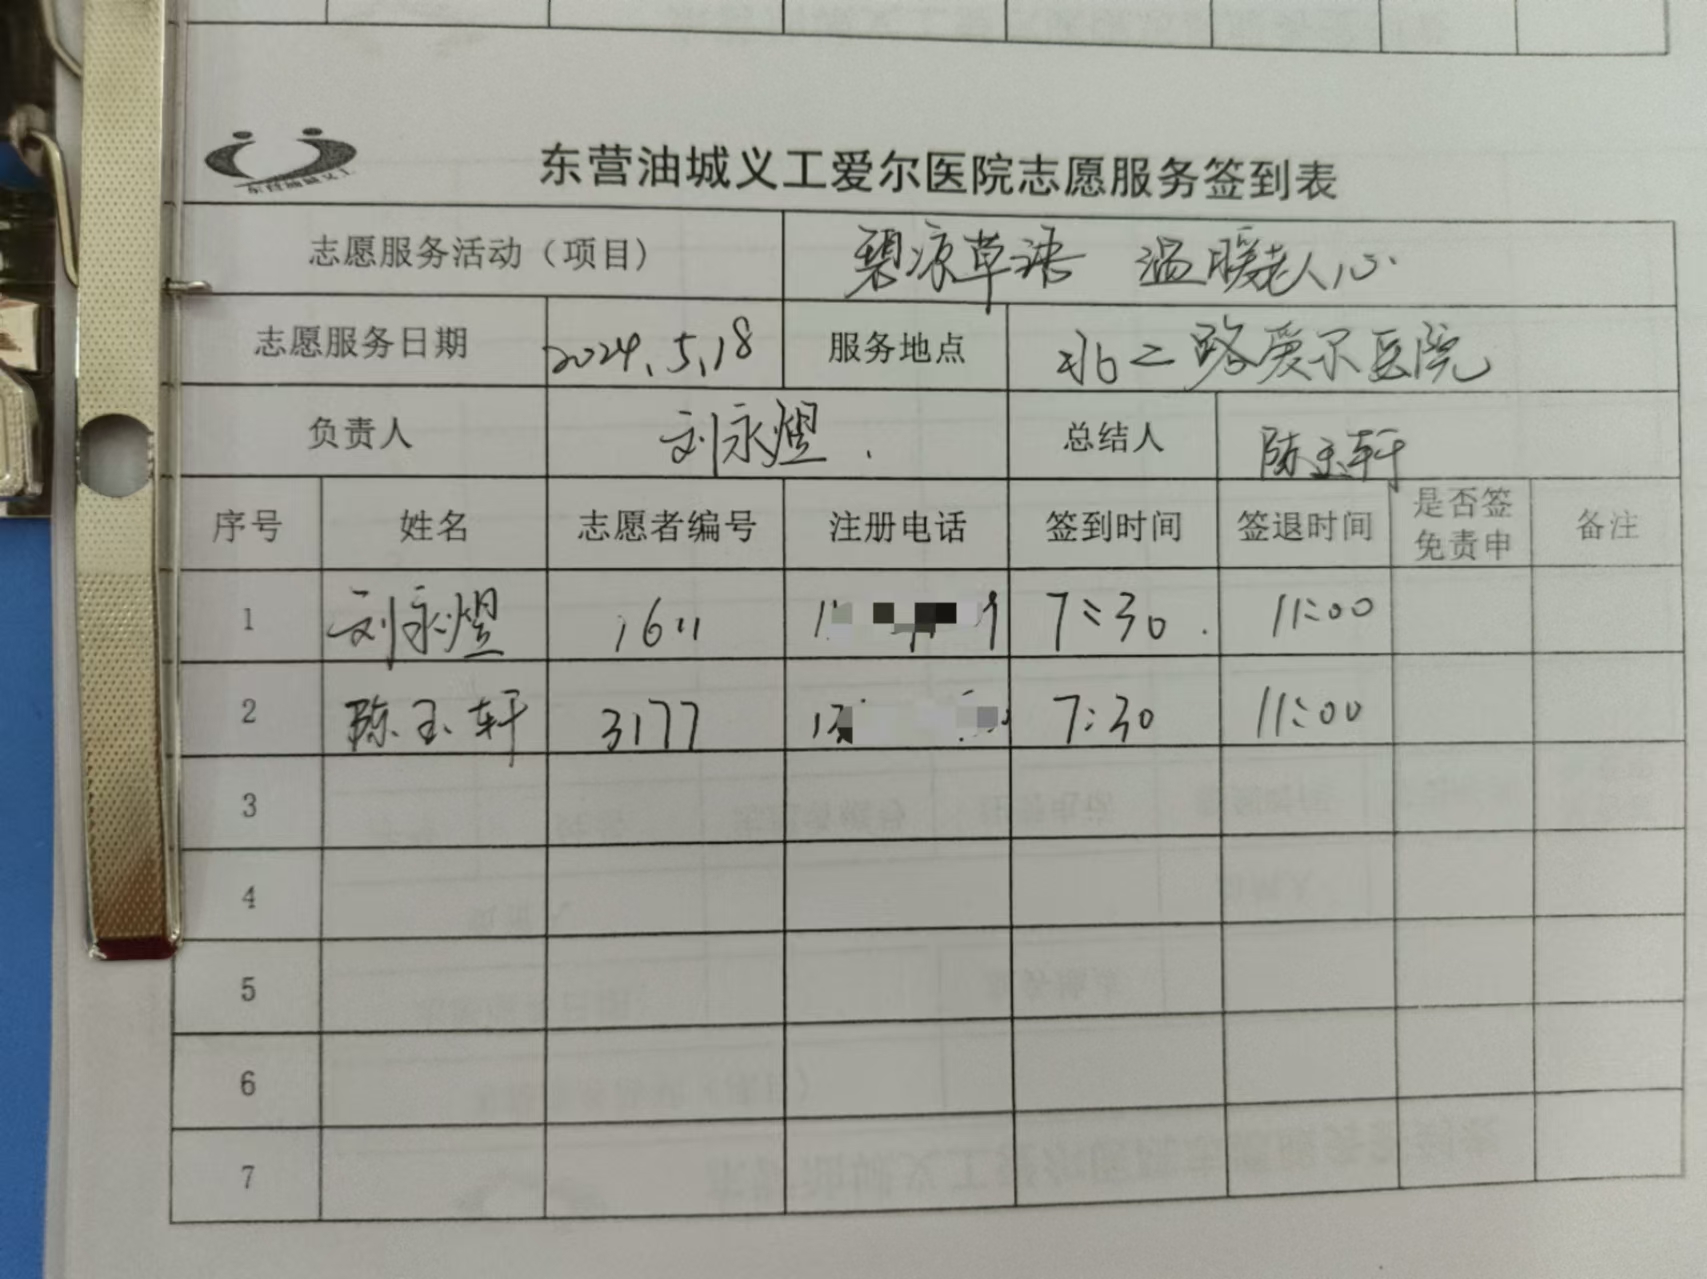 东营油城义工
东营油城义工爱尔医院志愿服务签到表
志愿服务活动（项目） 碧凉草语 温暖老人心
志愿服务日期 2024.5.18 服务地点 北二路爱尔医院
负责人 刘永煜 总结人 陈玉轩
序号 姓名 志愿者编号 注册电话 签到时间 签退时间 是否签免责申 备注
1 刘永煜 1611 7:30 11:00
2 陈玉轩 3177 7:30 11:00
3
4
5
6
7